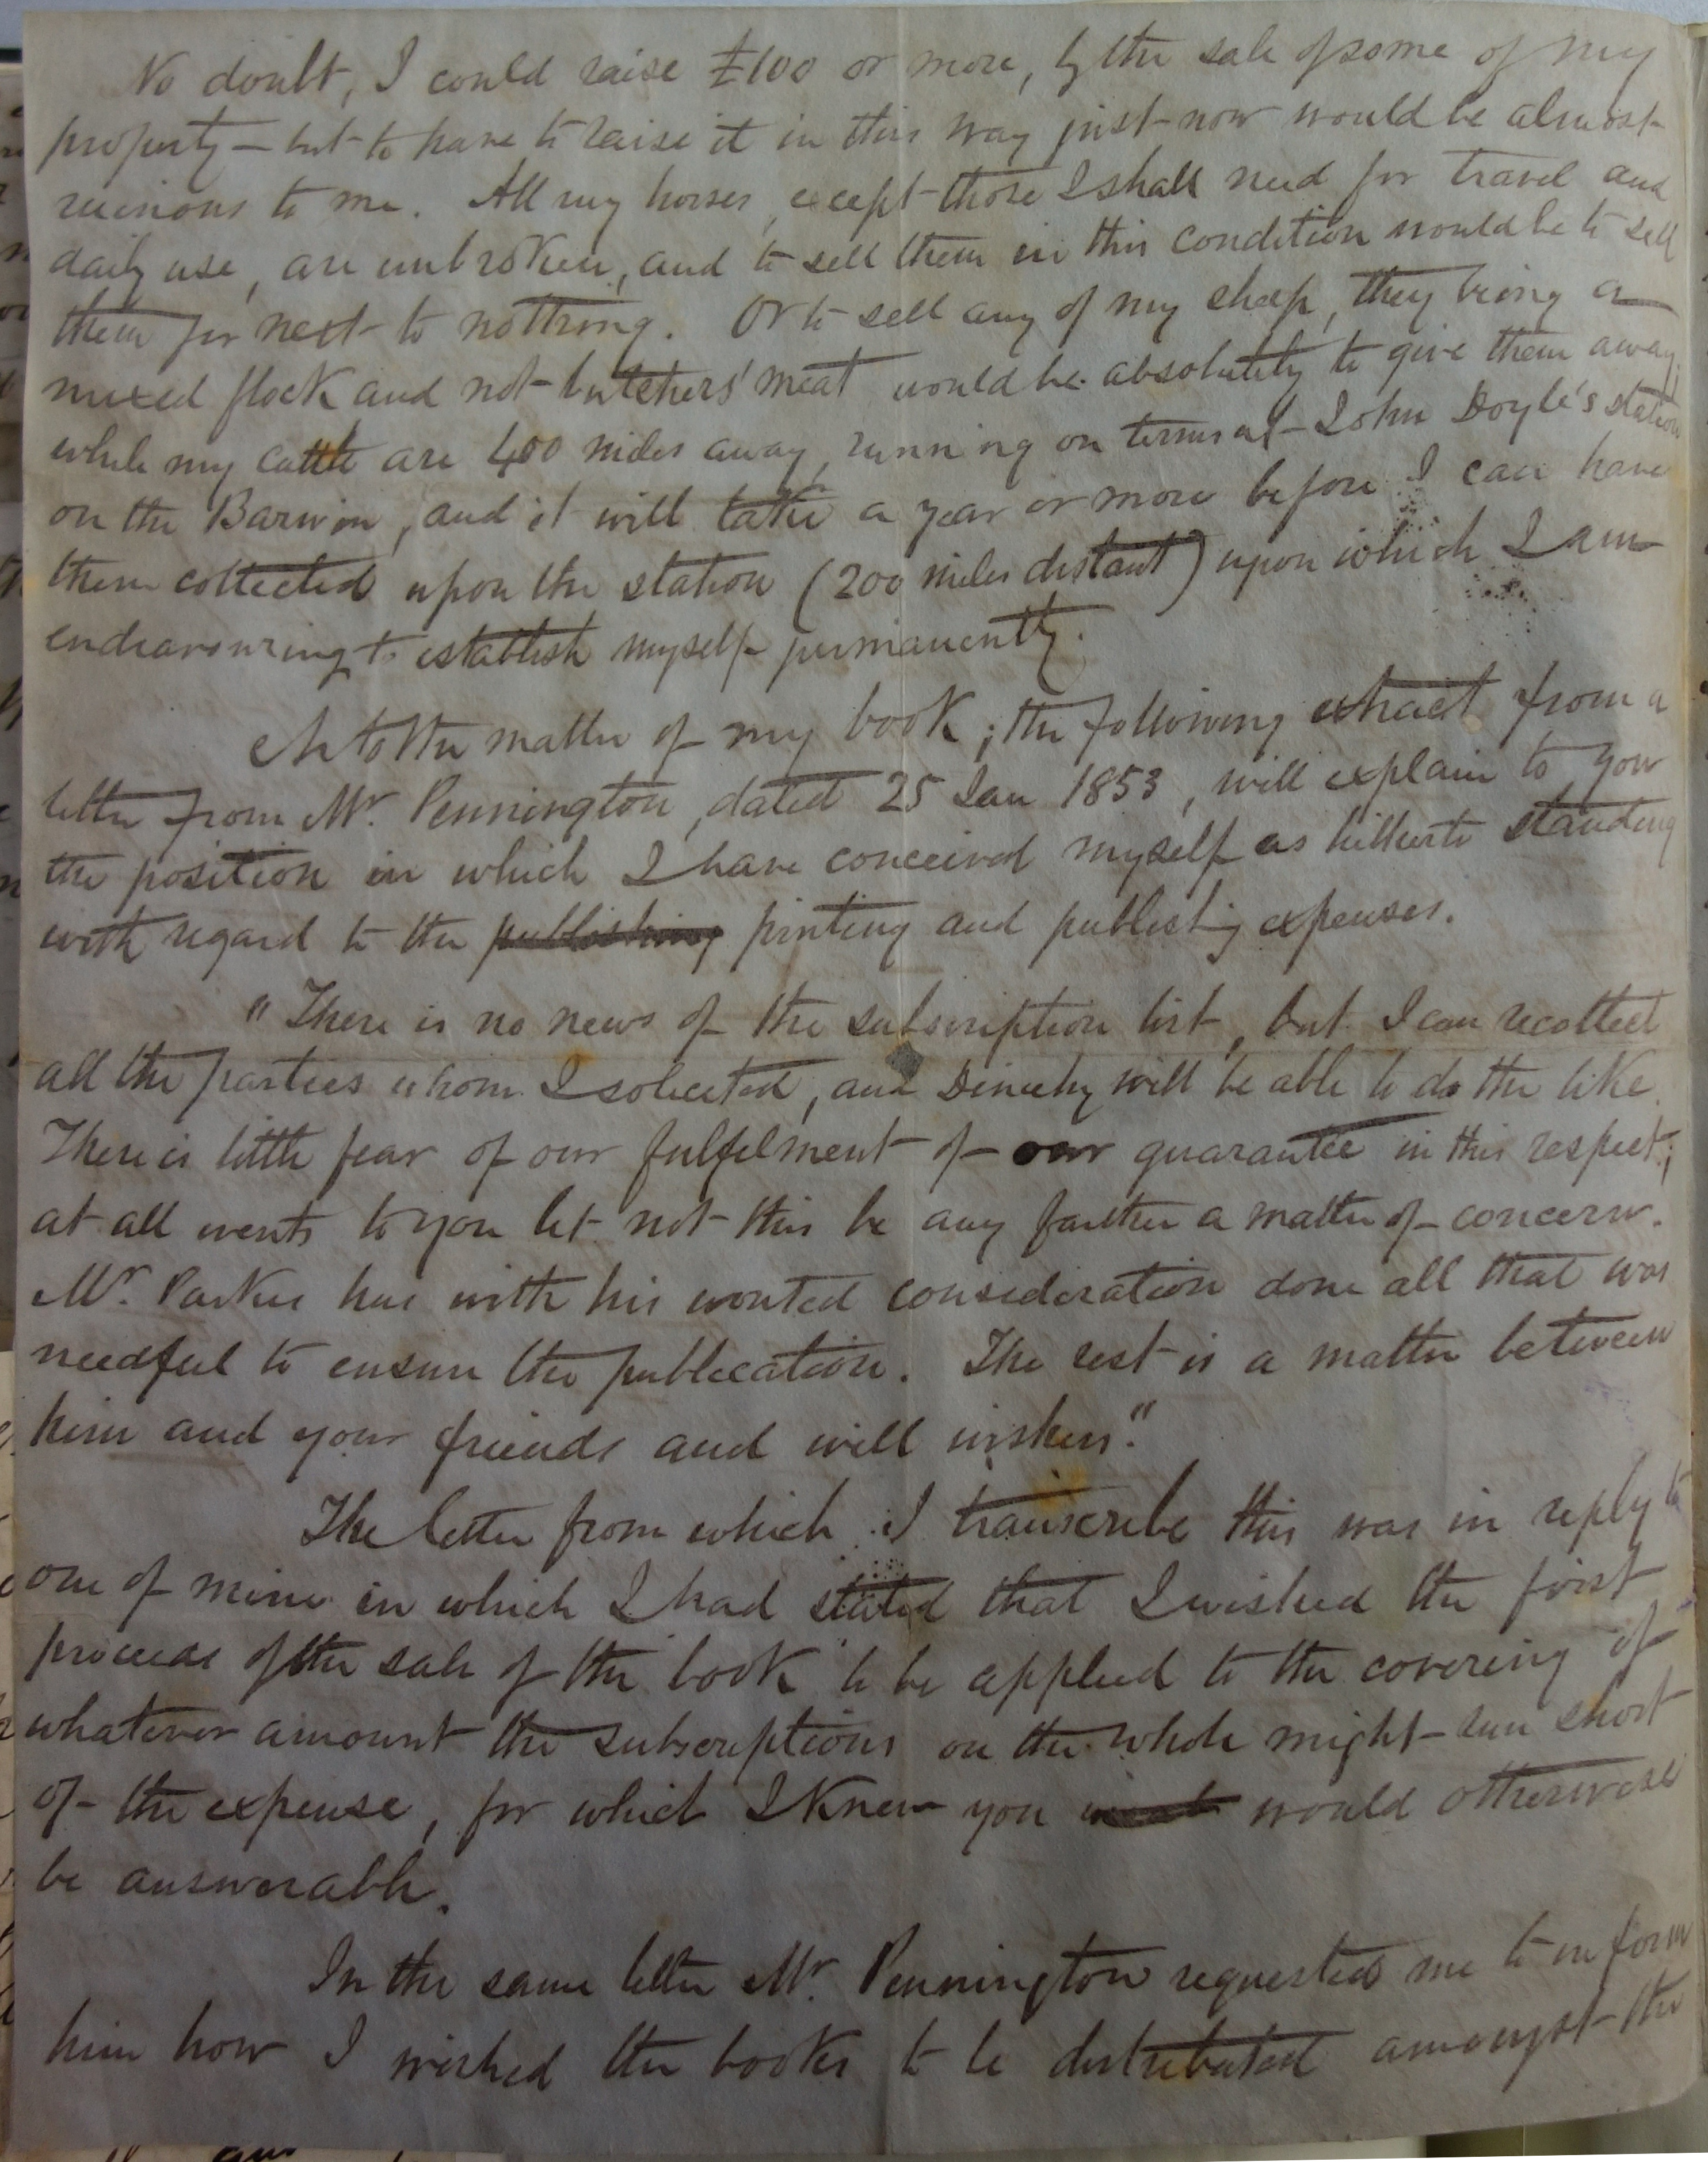 No doubt, I could raise £100 or more, by the sale of some of my
property — but to have to raise it in this way just now would be almost
ruinous to me. All my horses, except those I shall need for travel and
daily use, are unbroken, and to sell them in this condition would be to sell
them for next to nothing. Or to sell any of my sheep, they being a
mixed flock and not butchers' meat would be absolutely to give them away;
while my cattle are 400 miles away, running on terms at John Doyle's station
on the Barwon, and it will take a year or more before I can have
them collected upon the station (200 miles distant) upon which I am
endeavouring to establish myself permanently.
As to the matter of my book; the following extract from a
letter from Mr. Pennington, dated 25 Jan 1853, will explain to you
the position in which I have conceived myself as hitherto standing
with regard to the publishing printing and publishing expenses.
"There is no news of the subscription list, but I can recollect
all the parties whom I solicited, and Dineley will be able to do the like.
There is little fear of our fulfilment of our guarantee in this respect;
at all events to you let not this be any farther a matter of concern.
Mr. Parker has with his wonted consideration done all that was
needful to ensure the publication. The rest is a matter between
him and your friends and will wishers."
The letter from which I transcribe this was in reply to
one of mine in which I had stated that I wished the first
proceeds of the sale of the book to be applied to the covering of
whatever amount the subscriptions on the whole might run short
of the expense, for which I knew you would otherwise
be answerable.
In the same letter Mr. Pennington requested me to inform
him how I wished the books to be distributed amongst the